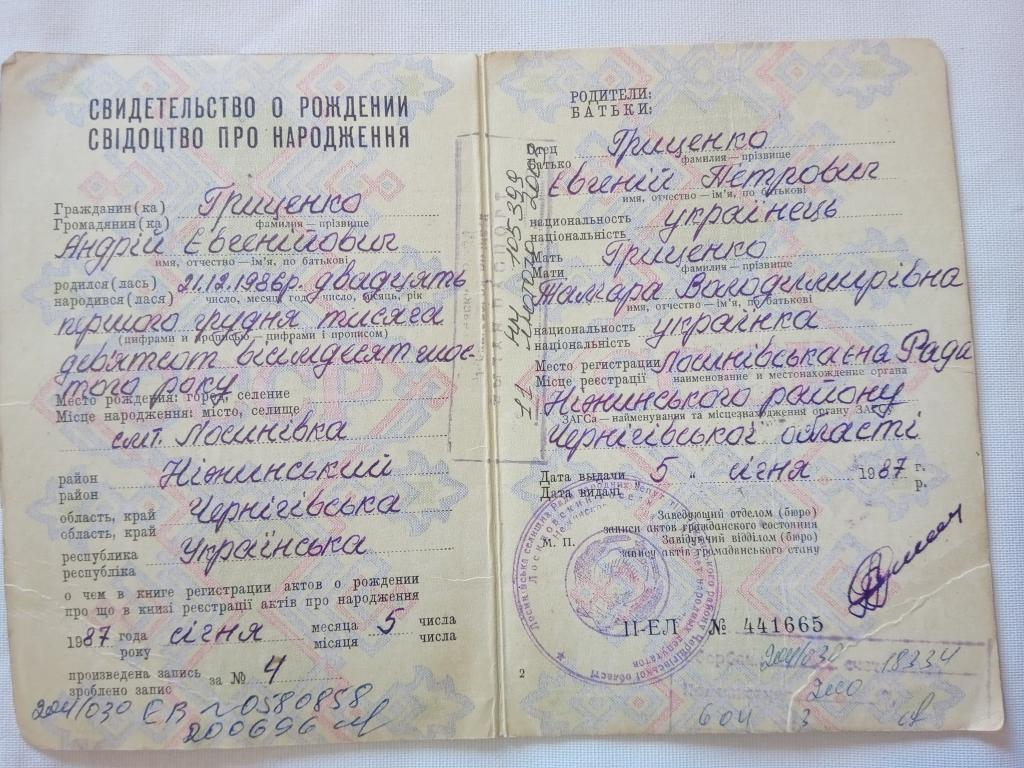 СВИДЕТЕЛЬСТВО О РОЖДЕНИИ
СВІДОЦТВО ПРО НАРОДЖЕННЯ
Гражданин(ка) Гриценко
Громадянин(ка) фамилия — прізвище
Андрій Євгенійович
имя, отчество — ім'я, по батькові
родился(лась) 21.12.1986р. двадцять
народився(лася) число, месяц, год — число, місяць, рік
першого грудня тисяча
(цифрами и прописью — цифрами і прописом)
дев'ятсот вісімдесят шос-
того року
Место рождения: город, селение
Місце народження: місто, селище
смт. Лосинівка
район Ніжинський
район
область, край Чернігівська
область, край
республика Українська
республіка
о чем в книге регистрации актов о рождении
про що в книзі реєстрації актів про народження
1987 года січня месяца 5 числа
року місяця числа
произведена запись за № 4
зроблено запис
204/030 ЕВ №0580858
200696
РОДИТЕЛИ:
БАТЬКИ:
Отец Гриценко
Батько фамилия — прізвище
Євгеній Петрович
имя, отчество — ім'я, по батькові
национальность українець
національність
Мать Гриценко
Мати фамилия — прізвище
Тамара Володимирівна
имя, отчество — ім'я, по батькові
национальность українка
національність
Место регистрации Лосинівська с-на Рада
Місце реєстрації наименование и местонахождение органа
Ніжинського району
ЗАГСа — найменування та місцезнаходження органу ЗАГСу
Чернігівської області
Дата выдачи 5 " січня 1987 г.
Дата видачі р.
Заведующий отделом (бюро)
записи актов гражданского состояния
М. П. Завідуючий відділом (бюро)
запису актів громадянського стану
II-ЕЛ № 441665
2
204/030 18334
2410
604 3